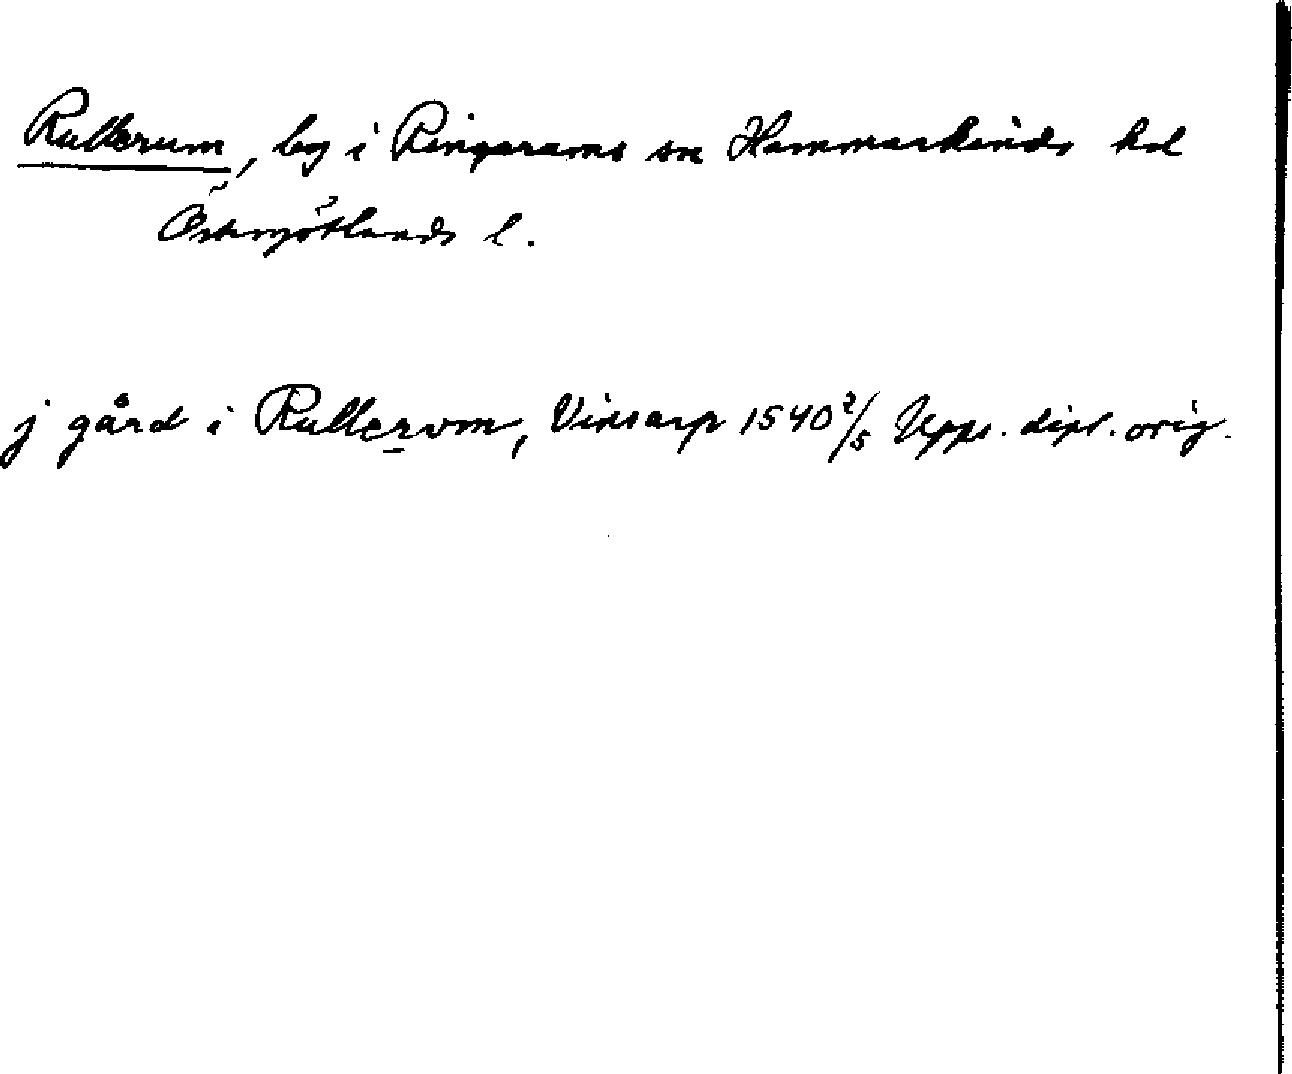 Rullerum, by i Ringarums sn Hammarkinds hd
Östergötlands l.
j gård i Rullervm, Vinsarp 1540 2/5 Upps. dipl. orig.